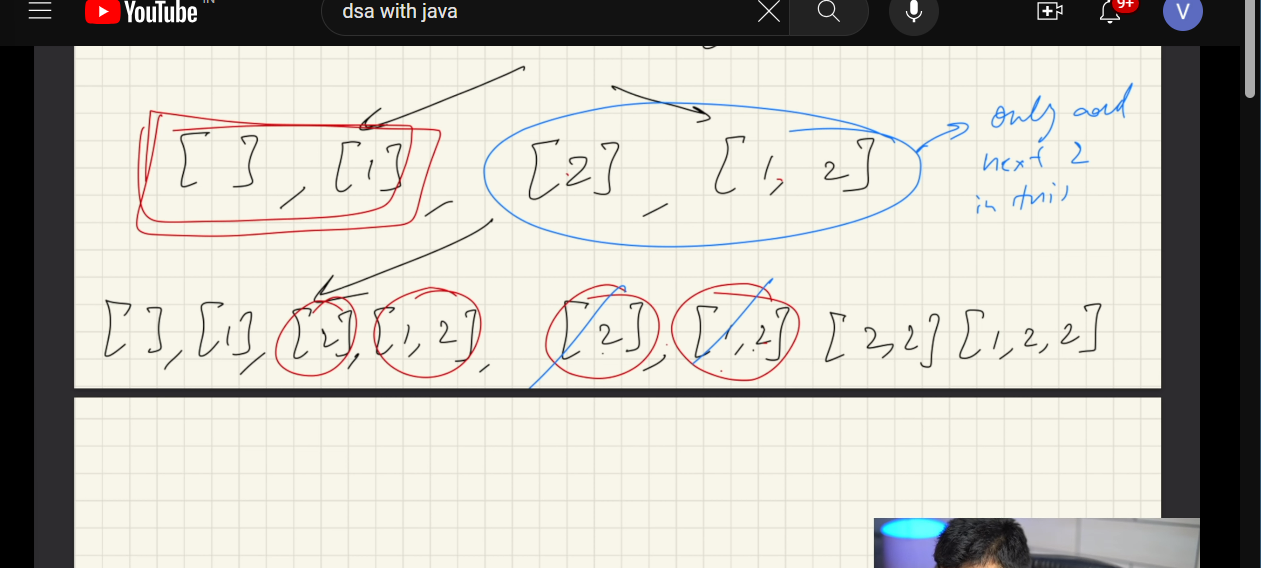 YouTube IN
dsa with java
9+
V
[ ] , [1] , [2] , [1, 2]
only add
next 2
in this
[ ], [1], [2], [1, 2], [2], [1, 2] [2, 2] [1, 2, 2]